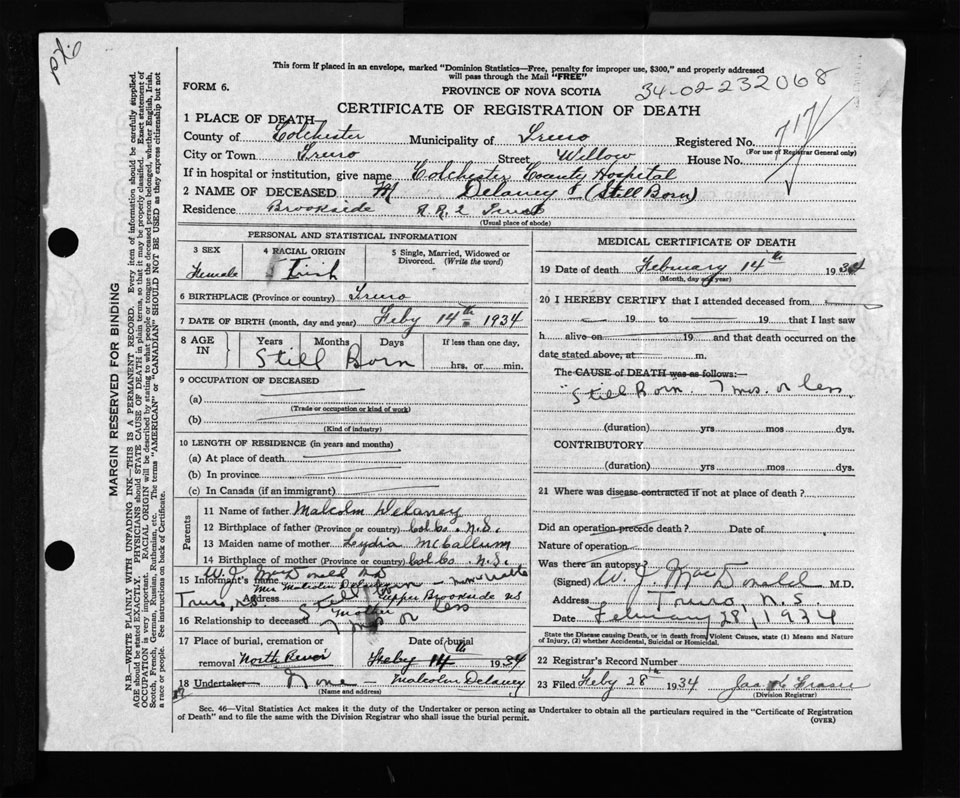 pxi
This form if placed in an envelope, marked "Dominion Statistics—Free, penalty for improper use, $300," and properly addressed
will pass through the Mail "FREE"
FORM 6.
PROVINCE OF NOVA SCOTIA
34-02-232068
CERTIFICATE OF REGISTRATION OF DEATH
1 PLACE OF DEATH—
County of Colchester Municipality of Truro Registered No. 717
(For use of Registrar General only)
City or Town Truro Street Willow House No.
If in hospital or institution, give name Colchester County Hospital
2 NAME OF DECEASED M Delaney (Still Born)
Residence Brookside R.R. 2 Truro
(Usual place of abode)
MARGIN RESERVED FOR BINDING
N.B.—WRITE PLAINLY WITH UNFADING INK—THIS IS A PERMANENT RECORD. Every item of information should be carefully supplied.
AGE should be stated EXACTLY. PHYSICIANS should STATE CAUSE OF DEATH in plain terms, so that it may be properly classified. Exact statement of
OCCUPATION is very important. RACIAL ORIGIN will be described by stating to what people or tongue the deceased person belonged, whether English, Irish,
Scotch, French, German, Russian, Ruthenian, etc. The terms "AMERICAN" or "CANADIAN" SHOULD NOT BE USED as they express citizenship but not
a race or people. See instructions on back of Certificate.
PERSONAL AND STATISTICAL INFORMATION
3 SEX
Female
4 RACIAL ORIGIN
Irish
5 Single, Married, Widowed or
Divorced. (Write the word)
6 BIRTHPLACE (Province or country) Truro
7 DATE OF BIRTH (month, day and year) Feby 14th 1934
8 AGE IN
Years Months Days If less than one day,
Still Born hrs. or min.
9 OCCUPATION OF DECEASED
(a)
(Trade or occupation or kind of work)
(b)
(Kind of industry)
10 LENGTH OF RESIDENCE (in years and months)
(a) At place of death
(b) In province
(c) In Canada (if an immigrant)
Parents
11 Name of father Malcolm Delaney
12 Birthplace of father (Province or country) Col. Co. N.S.
13 Maiden name of mother Lydia McCallum
14 Birthplace of mother (Province or country) Col. Co. N.S.
W. J. MacDonald M.D.
15 Informant's name Mrs Malcolm
Truro, N.S. Address Upper Brookside NS
Still
16 Relationship to deceased mother
7 mos or less
17 Place of burial, cremation or Date of burial
removal North River Feby 14th 1934
18 Undertaker None Malcolm Delaney
(Name and address)
MEDICAL CERTIFICATE OF DEATH
19 Date of death February 14th 1934
(Month, day and year)
20 I HEREBY CERTIFY that I attended deceased from
19 to 19 that I last saw
h alive on 19 and that death occurred on the
date stated above, at m.
The CAUSE of DEATH was as follows:—
Still Born. 7 mos. or less
(duration) yrs mos dys.
CONTRIBUTORY
(duration) yrs. mos dys.
21 Where was disease contracted if not at place of death?
Did an operation precede death? Date of
Nature of operation
Was there an autopsy?
(Signed) W. J. MacDonald M.D.
Address Truro, N.S
Date February 28, 1934
State the Disease causing Death, or in death from Violent Causes, state (1) Means and Nature
of Injury, (2) whether Accidental, Suicidal or Homicidal.
22 Registrar's Record Number
23 Filed Feby 28th 1934 Jas Fraser
(Division Registrar)
Sec. 46—Vital Statistics Act makes it the duty of the Undertaker or person acting as Undertaker to obtain all the particulars required in the "Certificate of Registration
of Death" and to file the same with the Division Registrar who shall issue the burial permit.
(OVER)